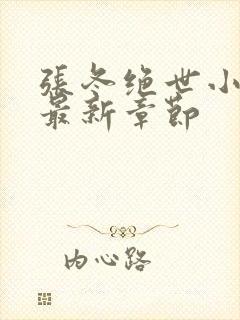 張冬绝世小
最新章節
内心路